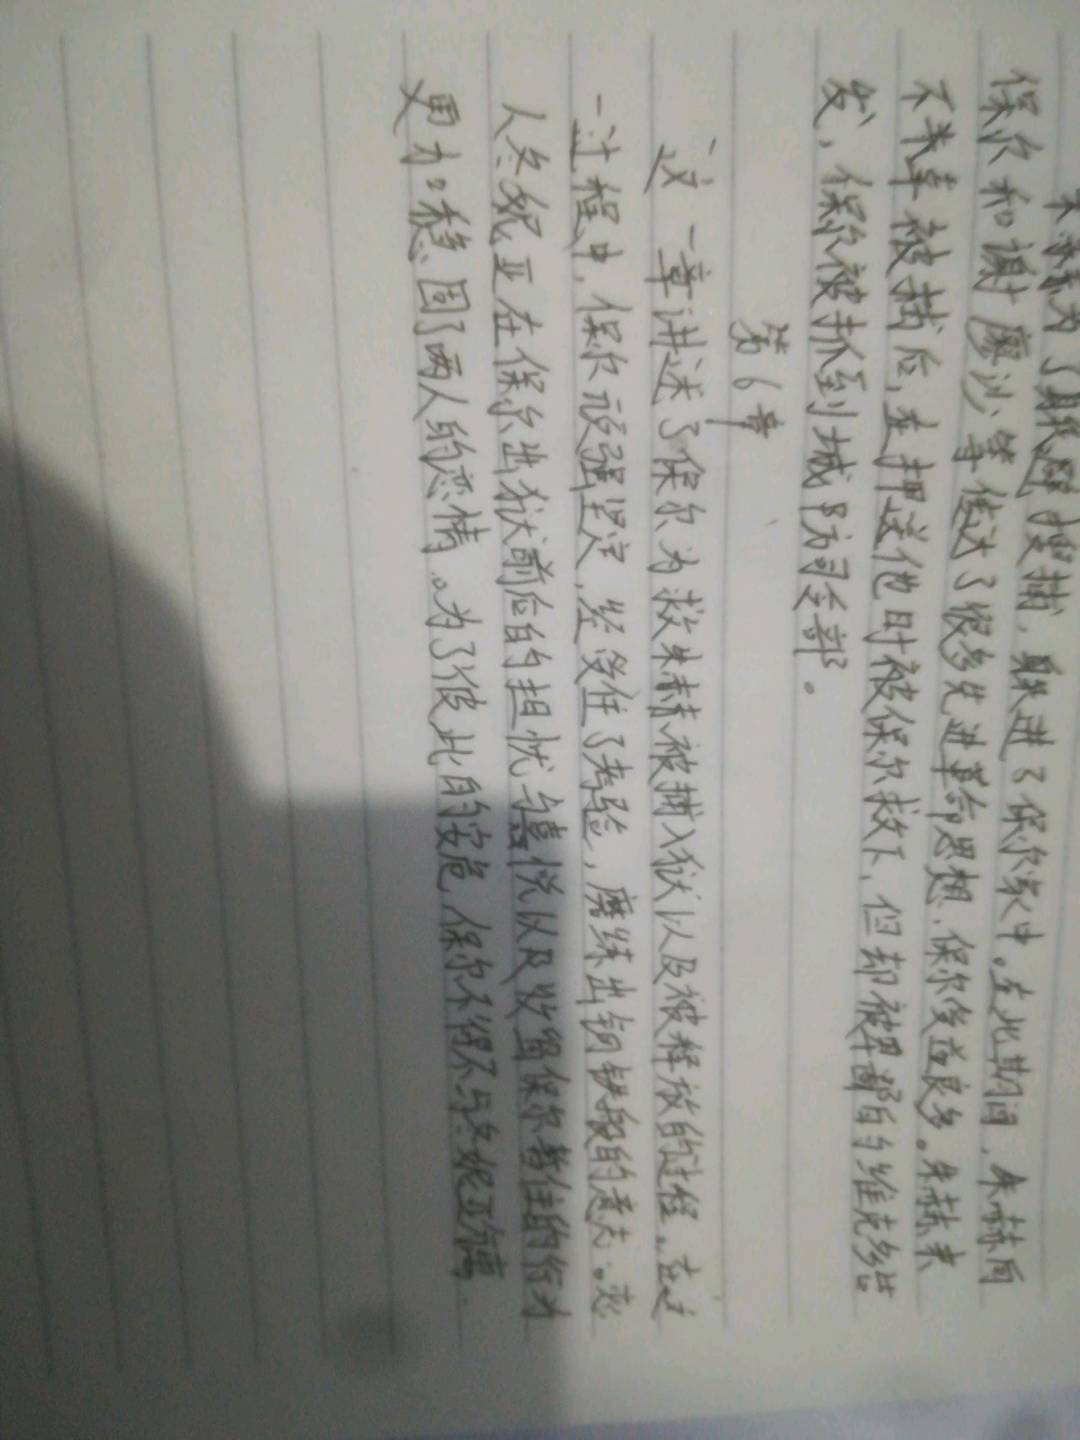 朱赫来为了躲避搜捕，躲进了保尔家中。在此期间，朱赫向
保尔和谢廖沙等传达了很多先进革命思想，保尔受益良多。朱赫来
不幸被捕后，在押送他时被保尔救下，但却被卑鄙的维克多告
发，保尔被抓到城防司令部。
第6章
这一章讲述了保尔为救朱赫被捕入狱以及被释放的过程。在这
一过程中，保尔顽强坚定，经受住了考验，磨练出钢铁般的意志。恋
人冬妮亚在保尔出狱前后的担忧与喜悦以及收留保尔暂住的行为
更加稳固了两人的恋情。为了彼此的安危，保尔不得不与冬妮亚分离.